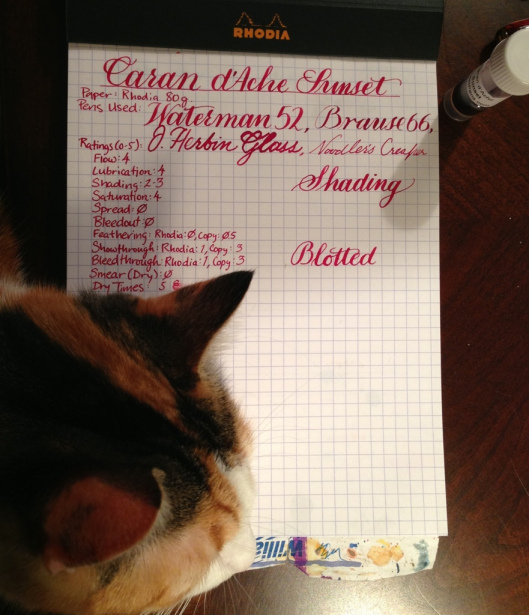 RHODIA
Caran d'Ache Sunset
Paper: Rhodia 80g
Pens Used: Waterman 52, Brause 66,
J. Herbin Glass, Noodler's Creaper
Ratings (0-5):
Flow: 4
Lubrication: 4
Shading: 2-3
Shading
Saturation: 4
Spread: Ø
Bleedout: Ø
Feathering: Rhodia: Ø, Copy: Ø.5
Showthrough: Rhodia: 1, Copy: 3
Bleedthrough Rhodia: 1, Copy: 3
Blotted
Smear (Dry): Ø
Dry Times: 5